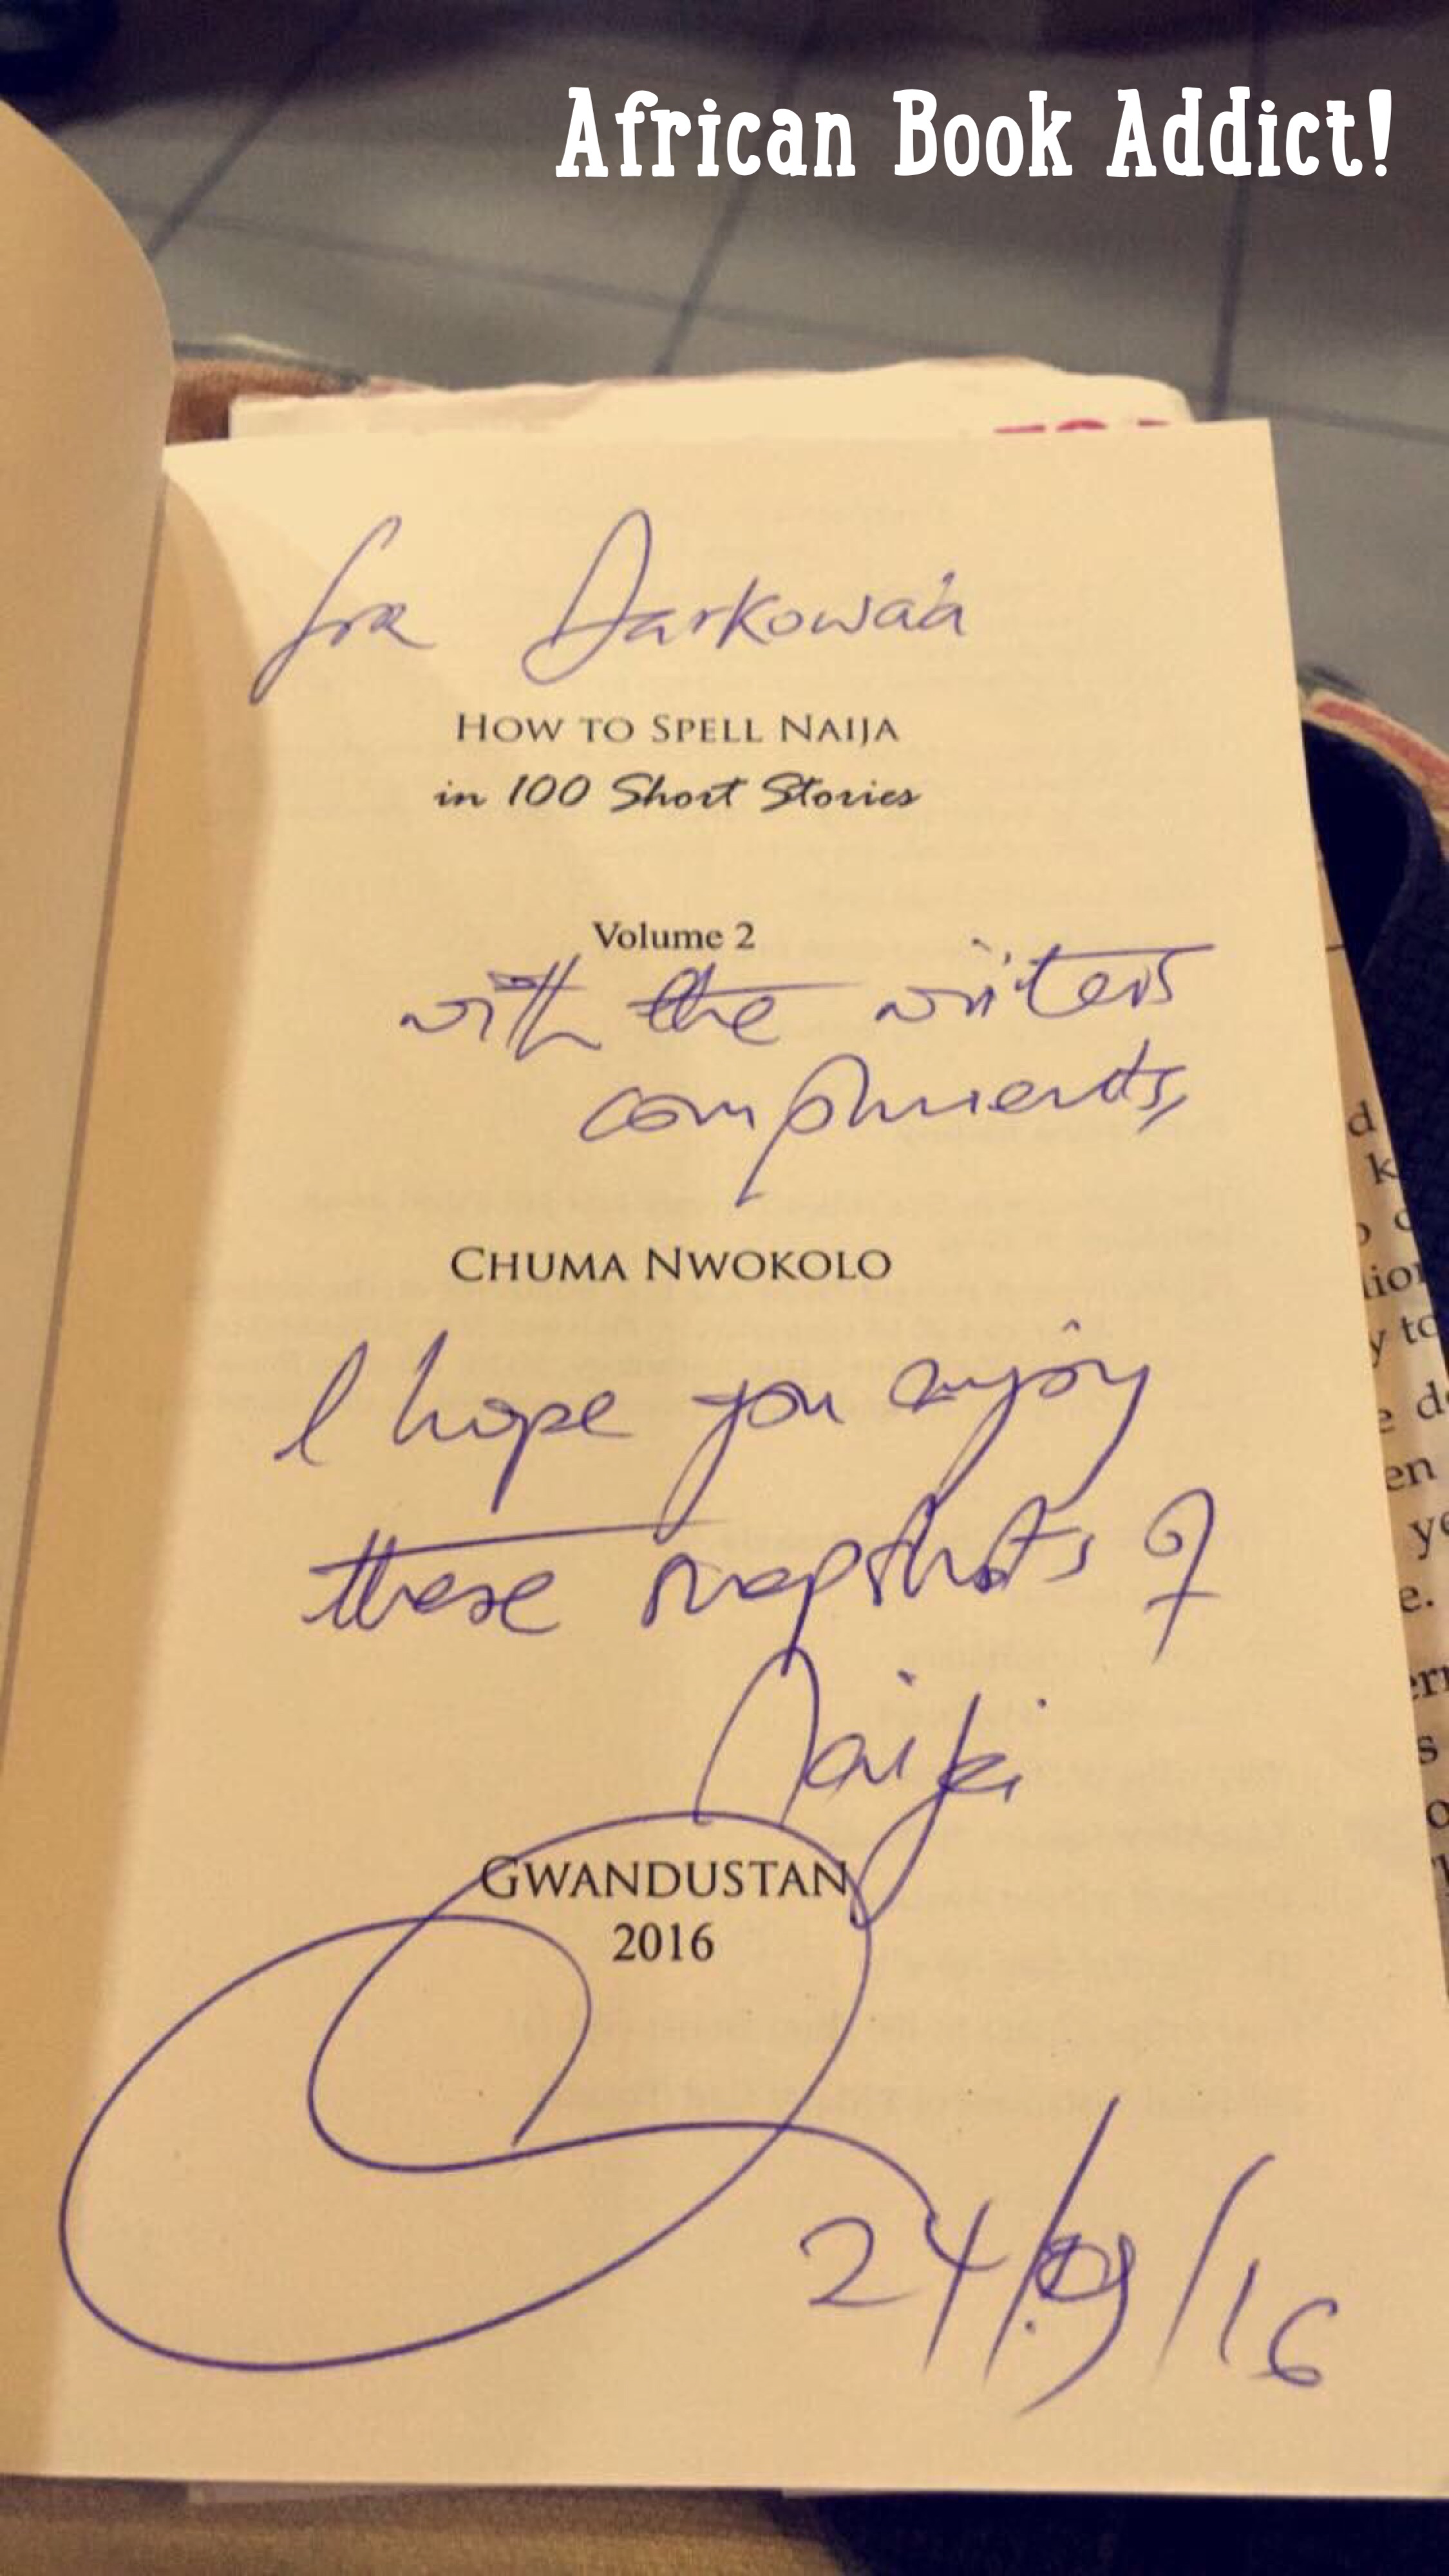 African Book Addict!
for Darkowaa
HOW TO SPELL NAIJA
in 100 Short Stories
Volume 2
with the writers
compliments,
CHUMA NWOKOLO
I hope you enjoy
these snapshots of
GWANDUSTAN
2016
24/09/16
d
k
y to
en
e.
s